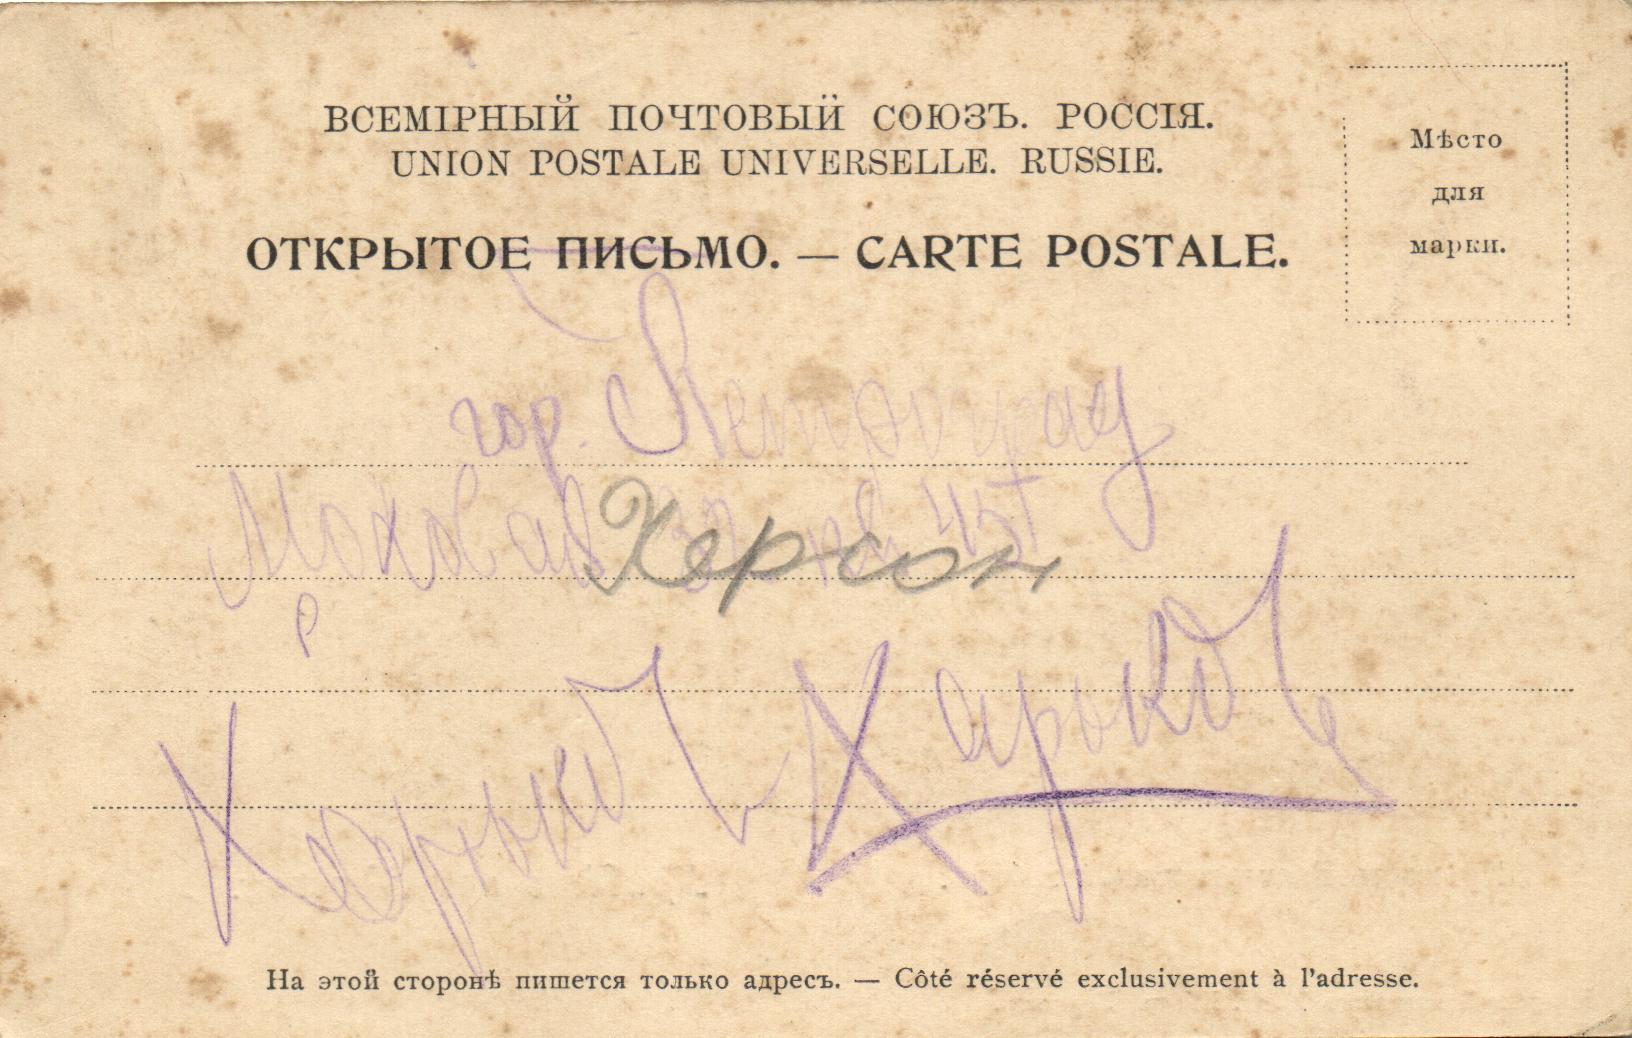 ВСЕМІРНЫЙ ПОЧТОВЫЙ СОЮЗЪ. РОССІЯ.
UNION POSTALE UNIVERSELLE. RUSSIE.
ОТКРЫТОЕ ПИСЬМО. — CARTE POSTALE.
Мѣсто
для
марки.
гор. Петроград
Херсон
Харьков
Харьков
На этой сторонѣ пишется только адресъ. — Côté réservé exclusivement à l'adresse.